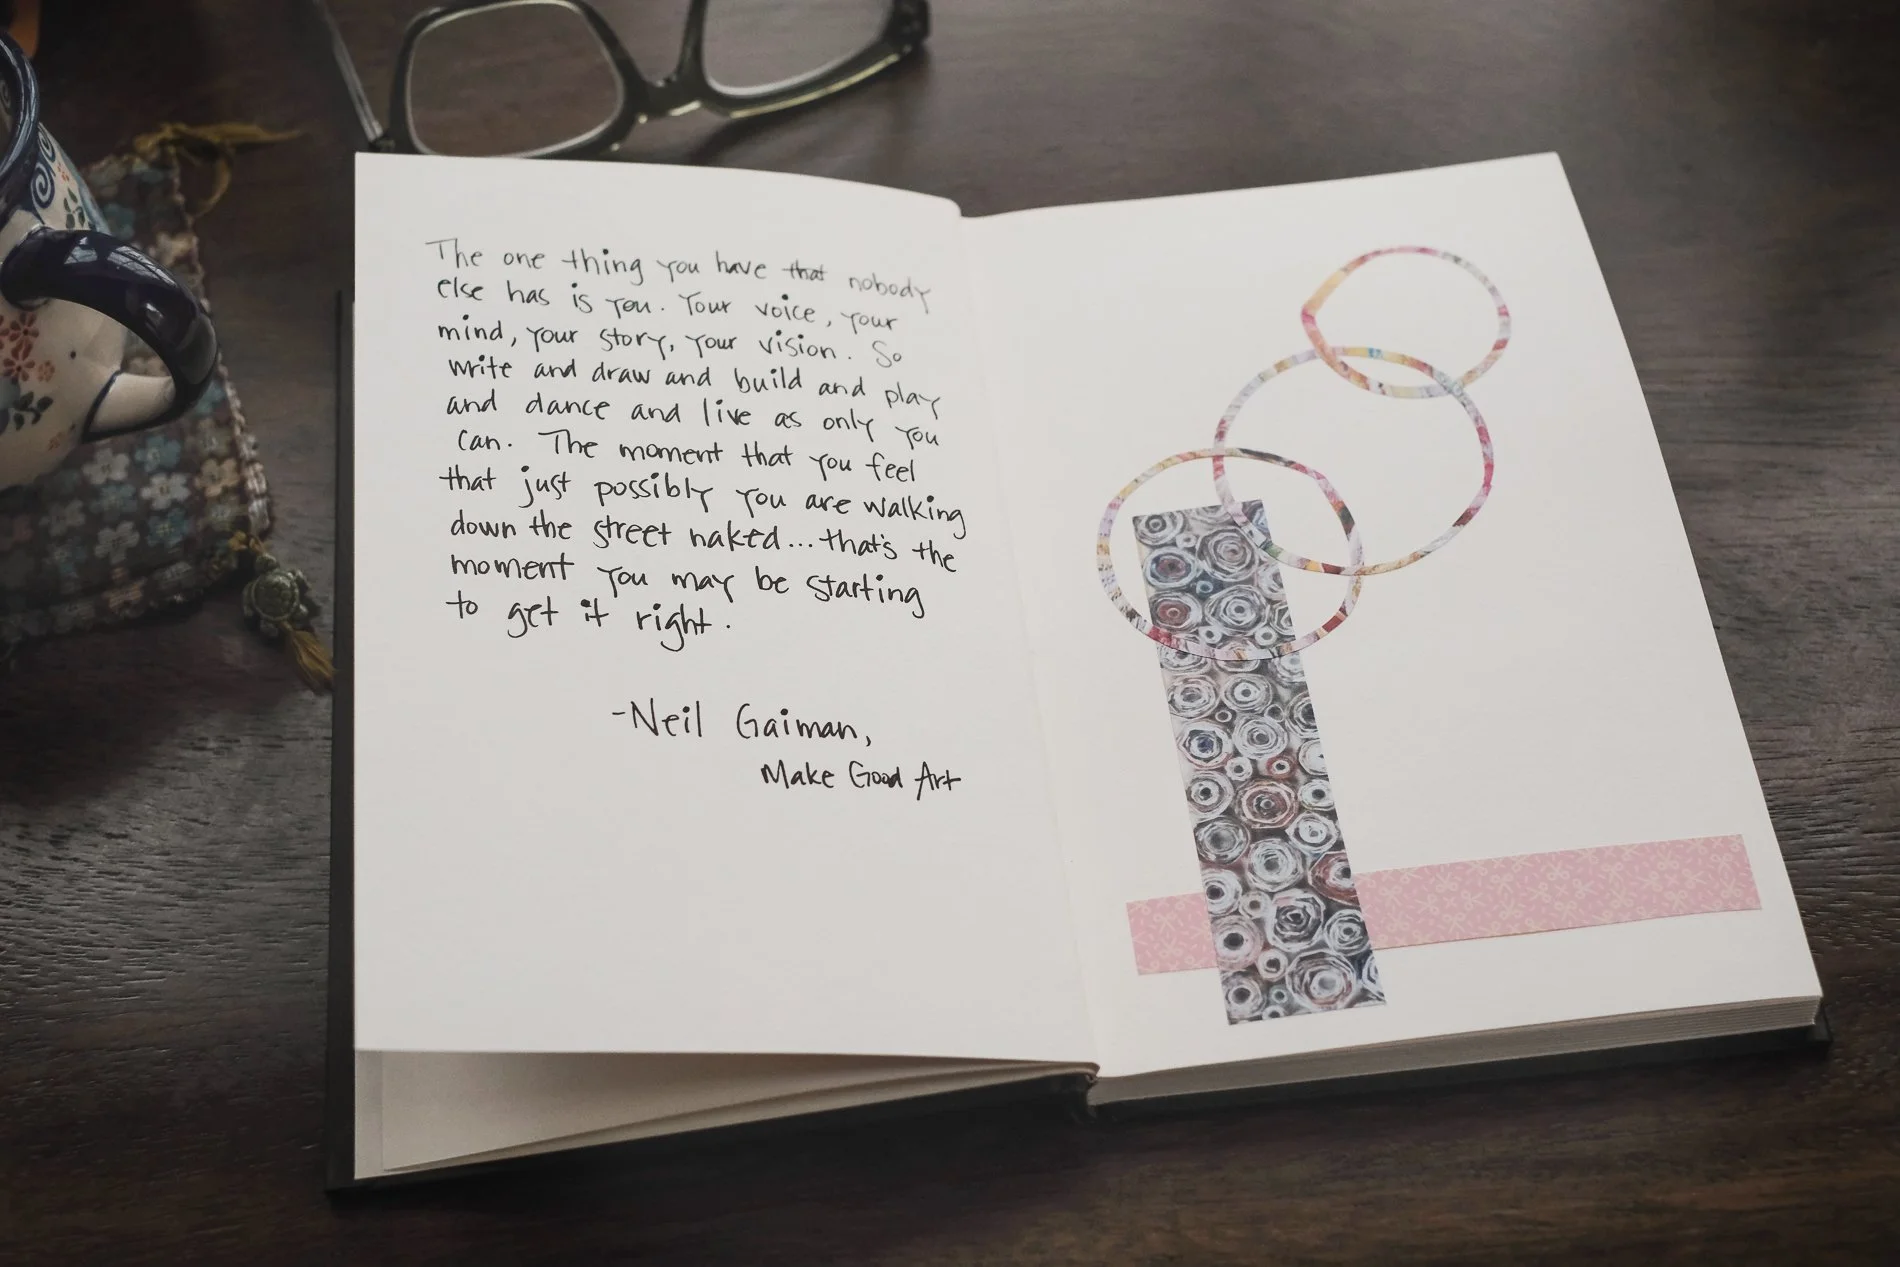 The one thing you have that nobody
else has is you. Your voice, your
mind, your story, your vision. So
write and draw and build and play
and dance and live as only you
can. The moment that you feel
that just possibly you are walking
down the street naked...that's the
moment you may be starting
to get it right.
-Neil Gaiman,
Make Good Art